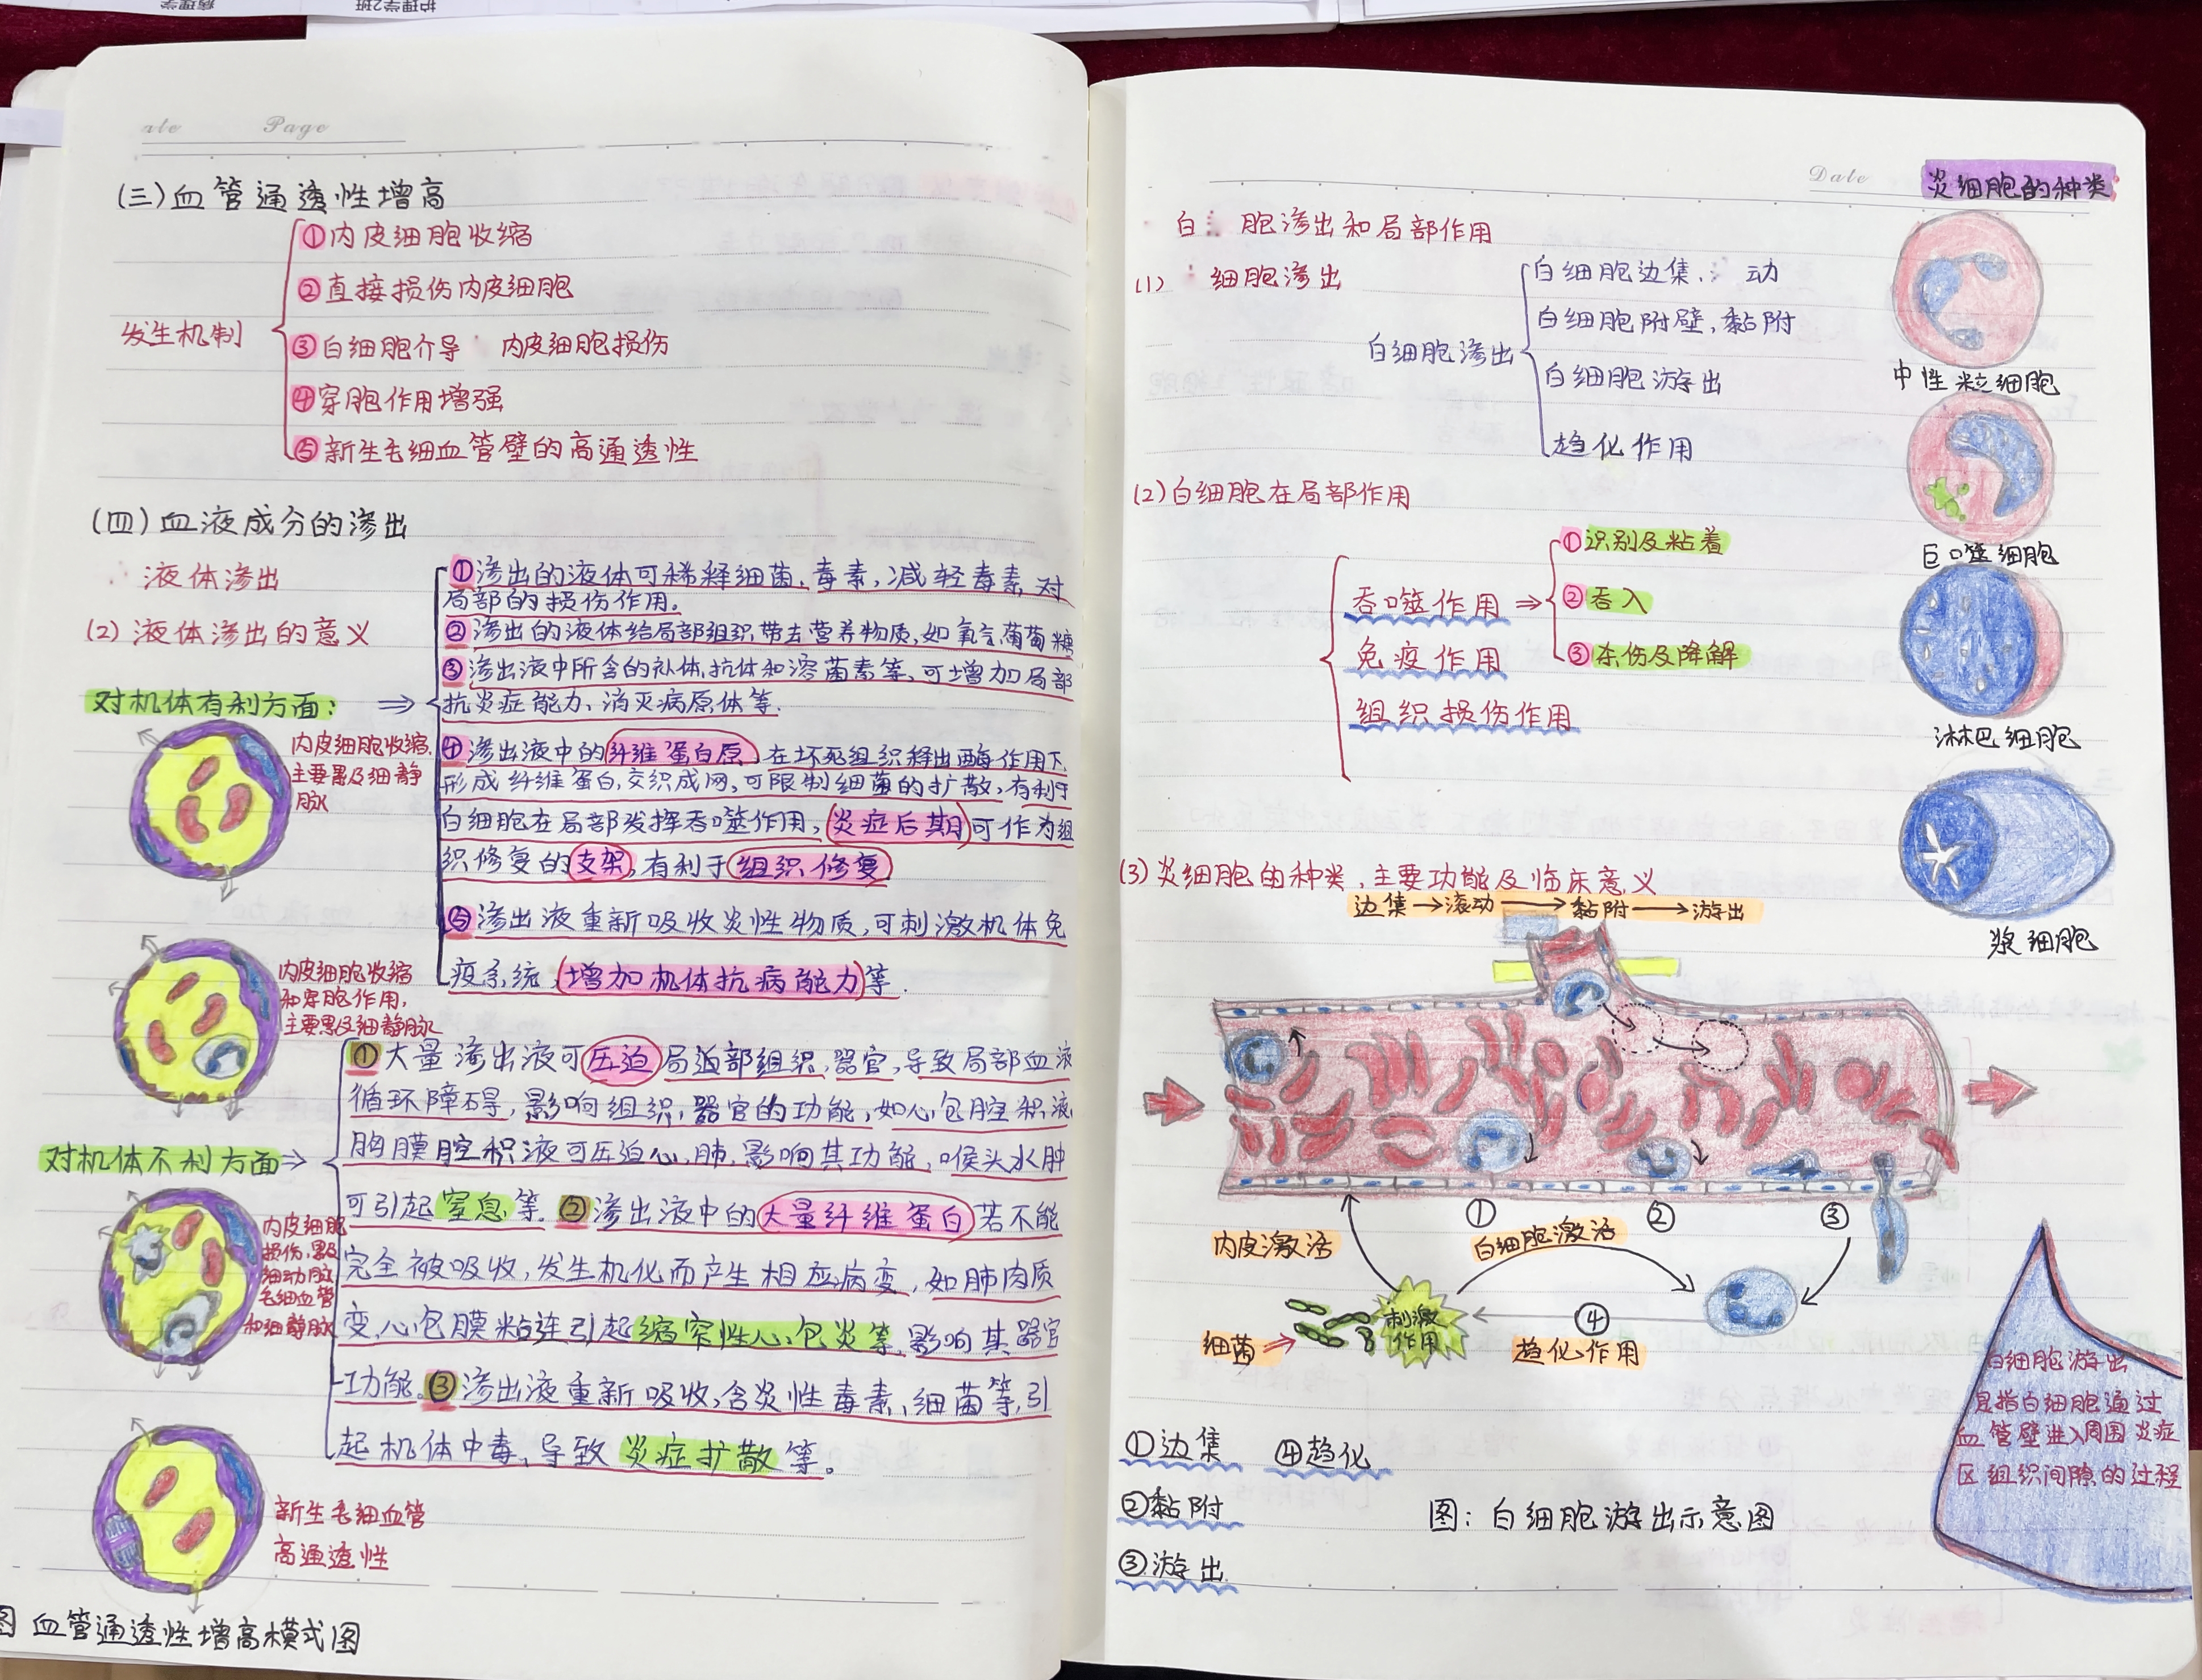 病理学
护理学2班
ate Page
(三)血管通透性增高
发生机制
①内皮细胞收缩
②直接损伤内皮细胞
③白细胞介导 内皮细胞损伤
④穿胞作用增强
⑤新生毛细血管壁的高通透性
(四)血液成分的渗出
液体渗出
(2)液体渗出的意义
对机体有利方面:⇒
①渗出的液体可稀释细菌、毒素,减轻毒素对
局部的损伤作用。
②渗出的液体给局部组织带去营养物质,如氧气、葡萄糖
③渗出液中所含的补体、抗体和溶菌素等,可增加局部
抗炎症能力、消灭病原体等.
④渗出液中的纤维蛋白原,在坏死组织释出酶作用下
形成纤维蛋白,交织成网,可限制细菌的扩散,有利于
白细胞在局部发挥吞噬作用,炎症后期可作为组
织修复的支架,有利于组织修复
⑤渗出液重新吸收炎性物质,可刺激机体免
疫系统,增加机体抗病能力等.
内皮细胞收缩,
主要累及细静
脉
内皮细胞收缩
和穿胞作用,
主要累及细静脉
对机体不利方面⇒
①大量渗出液可压迫局迫部组织,器官,导致局部血液
循环障碍,影响组织,器官的功能,如心包腔积液
胸膜腔积液可压迫心,肺,影响其功能,喉头水肿
可引起窒息等.②渗出液中的大量纤维蛋白若不能
完全被吸收,发生机化而产生相应病变,如肺肉质
变,心包膜粘连引起缩窄性心包炎等,影响其器官
功能。③渗出液重新吸收,含炎性毒素、细菌等,引
起机体中毒,导致炎症扩散等。
内皮细胞
损伤,累及
细动脉
毛细血管
和细静脉
新生毛细血管
高通透性
图 血管通透性增高模式图
Date
炎细胞的种类
白 胞渗出和局部作用
(1) 细胞渗出
白细胞渗出
白细胞边集, 动
白细胞附壁,黏附
白细胞游出
趋化作用
中性粒细胞
巨噬细胞
淋巴细胞
浆细胞
(2)白细胞在局部作用
吞噬作用⇒
①识别及粘着
②吞入
③杀伤及降解
免疫作用
组织损伤作用
(3)炎细胞的种类,主要功能及临床意义
边集→滚动→黏附→游出
① ② ③
内皮激活
白细胞激活
细菌⇒
刺激
作用
④
趋化作用
①边集 ④趋化
②黏附
③游出
图:白细胞游出示意图
白细胞游出
是指白细胞通过
血管壁进入周围炎症
区组织间隙的过程